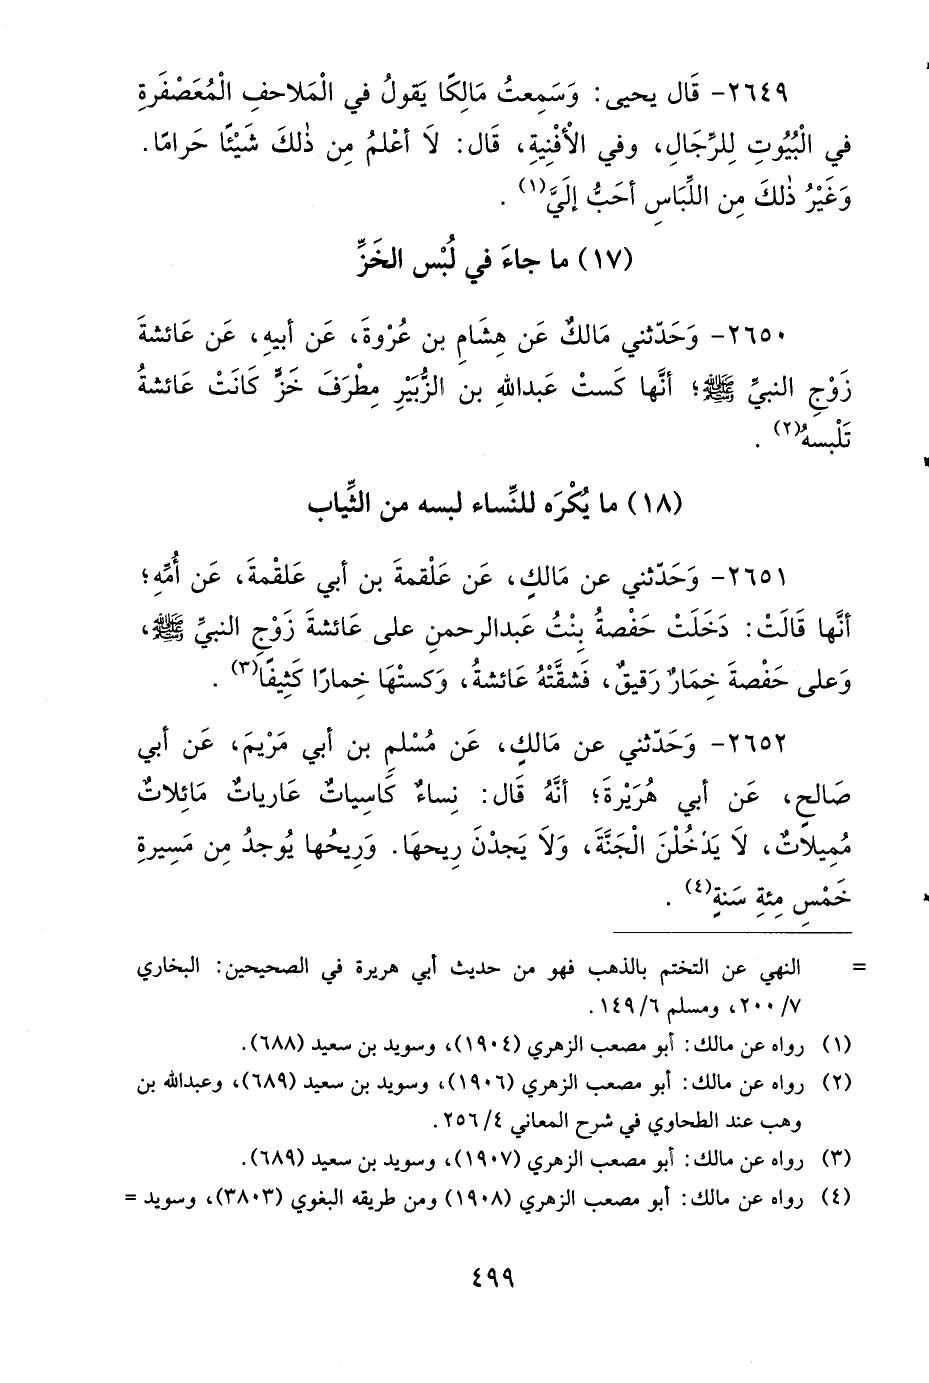 ٢٦٤٩- قَال يحيى: وَسَمِعتُ مَالِكًا يَقولُ في الْمَلاحفِ الْمُعَصْفَرةِ
في الْبُيُوتِ لِلرِّجَالِ، وفي الْأفْنِيةِ، قَال: لَا أعْلمُ مِن ذٰلكَ شَيْئًا حَرامًا.
وَغَيْرُ ذٰلكَ مِن اللِّبَاسِ أحَبُّ إلَيَّ(١) .
(١٧) ما جاءَ في لُبْس الخَزِّ
٢٦٥٠- وَحَدّثني مَالكٌ عَن هِشَامِ بن عُرْوةَ، عَن أبيهِ، عَن عَائشةَ
زَوْجِ النبيِّ ﷺ؛ أنَّها كَستْ عَبدالله بن الزُّبَيْرِ مِطْرَفَ خَزٍّ كَانَتْ عَائشةُ
تَلْبسهُ(٢) .
(١٨) ما يُكْرَه للنِّساء لبسه من الثِّياب
٢٦٥١- وَحَدّثني عن مَالكٍ، عَن عَلْقمةَ بن أبي عَلقْمةَ، عَن أُمِّهِ؛
أنَّها قَالَتْ: دَخَلَتْ حَفْصةُ بِنْتُ عَبدالرحمنِ على عَائشةَ زَوْجِ النبيِّ ﷺ،
وَعلى حَفْصةَ خِمَارٌ رَقيقٌ، فَشقَّتْهُ عَائشةُ، وَكستْهَا خِمارًا كَثِيفًا(٣) .
٢٦٥٢- وَحَدّثني عن مَالكٍ، عَن مُسْلمِ بن أبي مَرْيمَ، عَن أبي
صَالحٍ، عَن أبي هُرَيْرةَ؛ أنَّهُ قَال: نِساءٌ كَاسِياتٌ عَارياتٌ مَائلاتٌ
مُميلاتٌ، لَا يَدْخُلْنَ الْجَنَّةَ، وَلَا يَجدْنَ رِيحهَا. وَرِيحُها يُوجدُ مِن مَسِيرةِ
خَمْسِ مِئةِ سَنةٍ(٤) .
= النهي عن التختم بالذهب فهو من حديث أبي هريرة في الصحيحين: البخاري
٧/ ٢٠٠، ومسلم ٦/ ١٤٩.
(١) رواه عن مالك: أبو مصعب الزهري (١٩٠٤)، وسويد بن سعيد (٦٨٨).
(٢) رواه عن مالك: أبو مصعب الزهري (١٩٠٦)، وسويد بن سعيد (٦٨٩)، وعبدالله بن
وهب عند الطحاوي في شرح المعاني ٤/ ٢٥٦.
(٣) رواه عن مالك: أبو مصعب الزهري (١٩٠٧)، وسويد بن سعيد (٦٨٩).
(٤) رواه عن مالك: أبو مصعب الزهري (١٩٠٨) ومن طريقه البغوي (٣٨٠٣)، وسويد =
٤٩٩